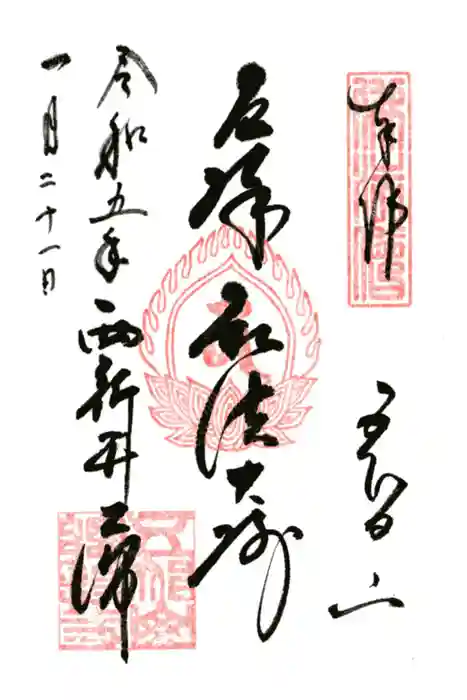 奉拝
五智山
厄除
弘法大師
西新井大師
令和五年
一月二十一日